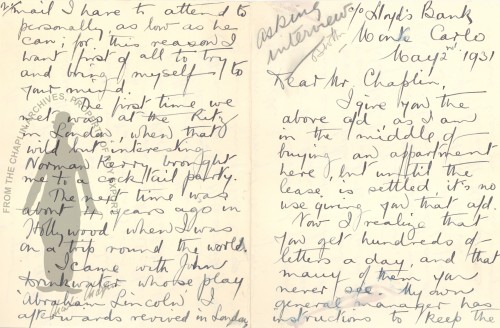 asking
interview
c/o Lloyd's Bank
Monte Carlo
May 2nd 1931
Dear Mr. Chaplin,
I give you the
above ad. as I am
in the middle of
buying an appartment
here, but until the
lease, is settled, it's no
use giving you that ad.
Now I realize that
you get hundreds of
letters a day, and that
many of them you
never see. My own
general manager has
instructions to "keep the
mail I have to attend to
personally as low as he
can; for this reason I
want first of all to try
and bring myself to
your mind.
The first time we
met was at the Ritz
in London, when that
wild but interesting
Norman Kerry brought
me to a cocktail party.
The next time was
about 4 years ago in
Hollywood when I was
on a trip round the world.
I came with John
Drinkwater whose play
"Abraham Lincoln" I
afterwards revived in London,
FROM THE CHAPLIN ARCHIVES, PROPERTY OF ROY EXPORT